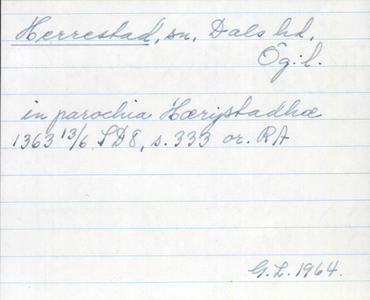 Herrestad, sn, Dals hd,
Ög. l.
in parochia Hærijstadhæ
1363 13/6 SD8, s. 333 or. RA
G. L. 1964.